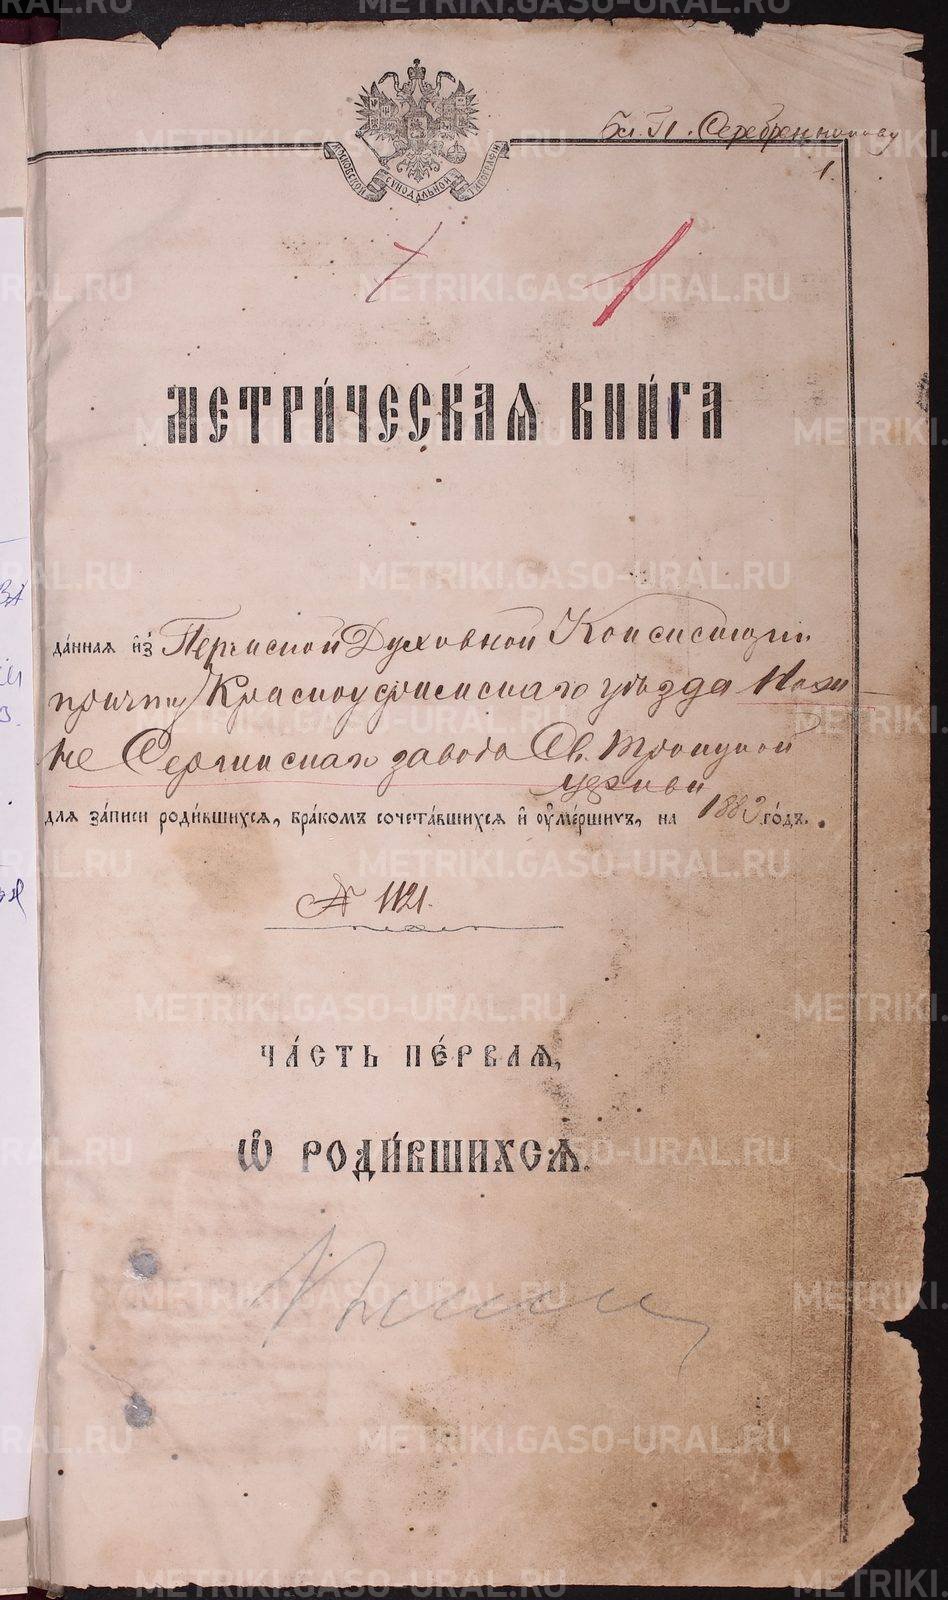 Бл. П. Серебренникову
1.
МОСКОВСКОЙ СѴНОДАЛЬНОЙ ТИПОГРАФІИ
1
МЕТРИ́ЧЕСКАѦ КНИ́ГА
да́ннаѧ и҆з̾ Пермской Духовной Консисторіи
причту Красноуфимскаго уѣзда Нижне
Сергинскаго завода Св. Троицкой
церкви
длѧ за́писи роди́вшихсѧ, бра́комъ сочета́вшихсѧ и҆ оу҆ме́ршихъ, на 1883 го́дъ.
№ 1121.
ЧА́СТЬ ПЕ́РВАѦ,
Ѡ҆ РОДИ́ВШИХСѦ.
METRIKI.GASO-URAL.RU